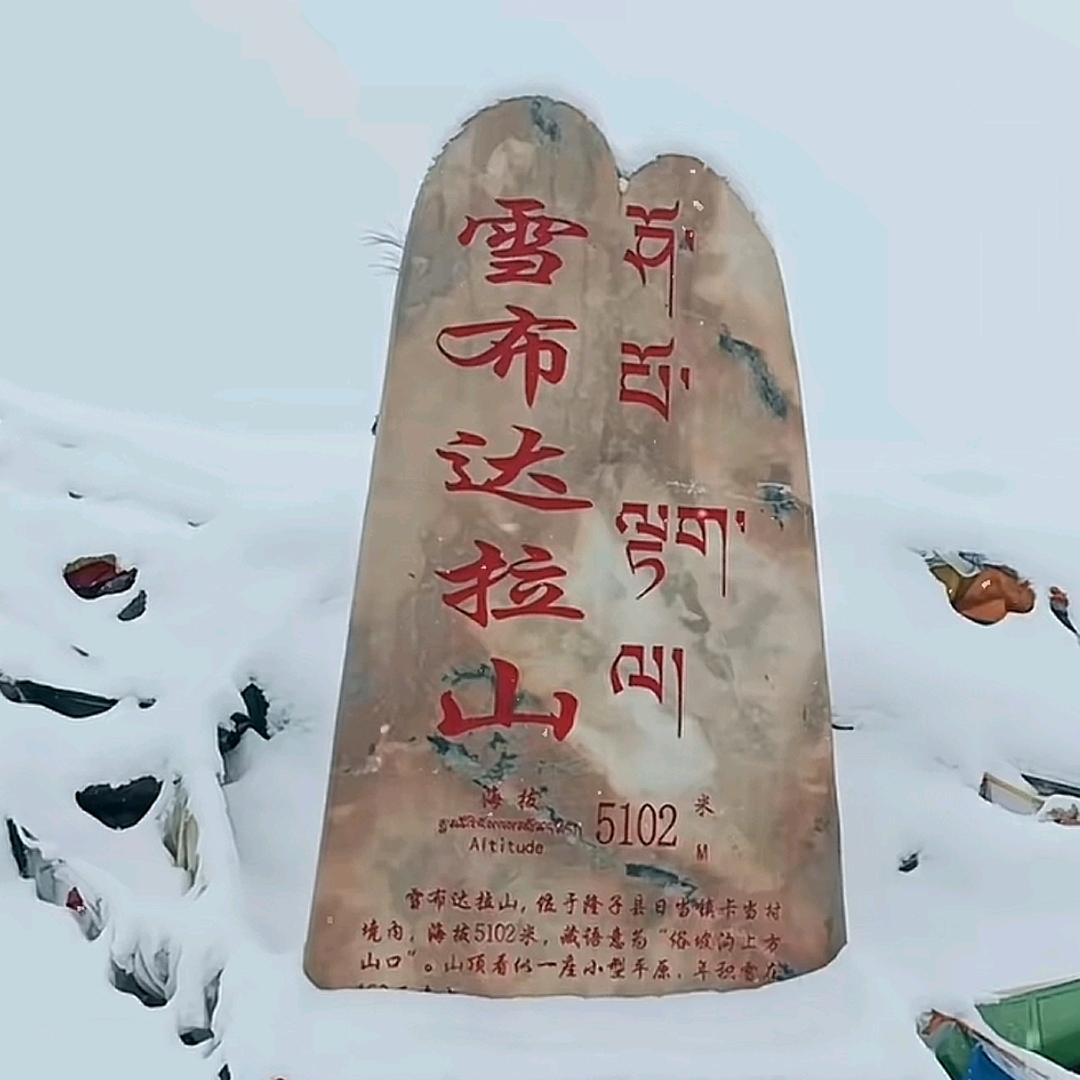 雪布达拉山
ལྟག་
ལ།
海拔
Altitude
5102
米
M
雪布达拉山，位于隆子县日当镇卡当村
境内，海拔5102米，藏语意为“俗坡沟上方
山口”。山顶看似一座小型平原，年积雪在